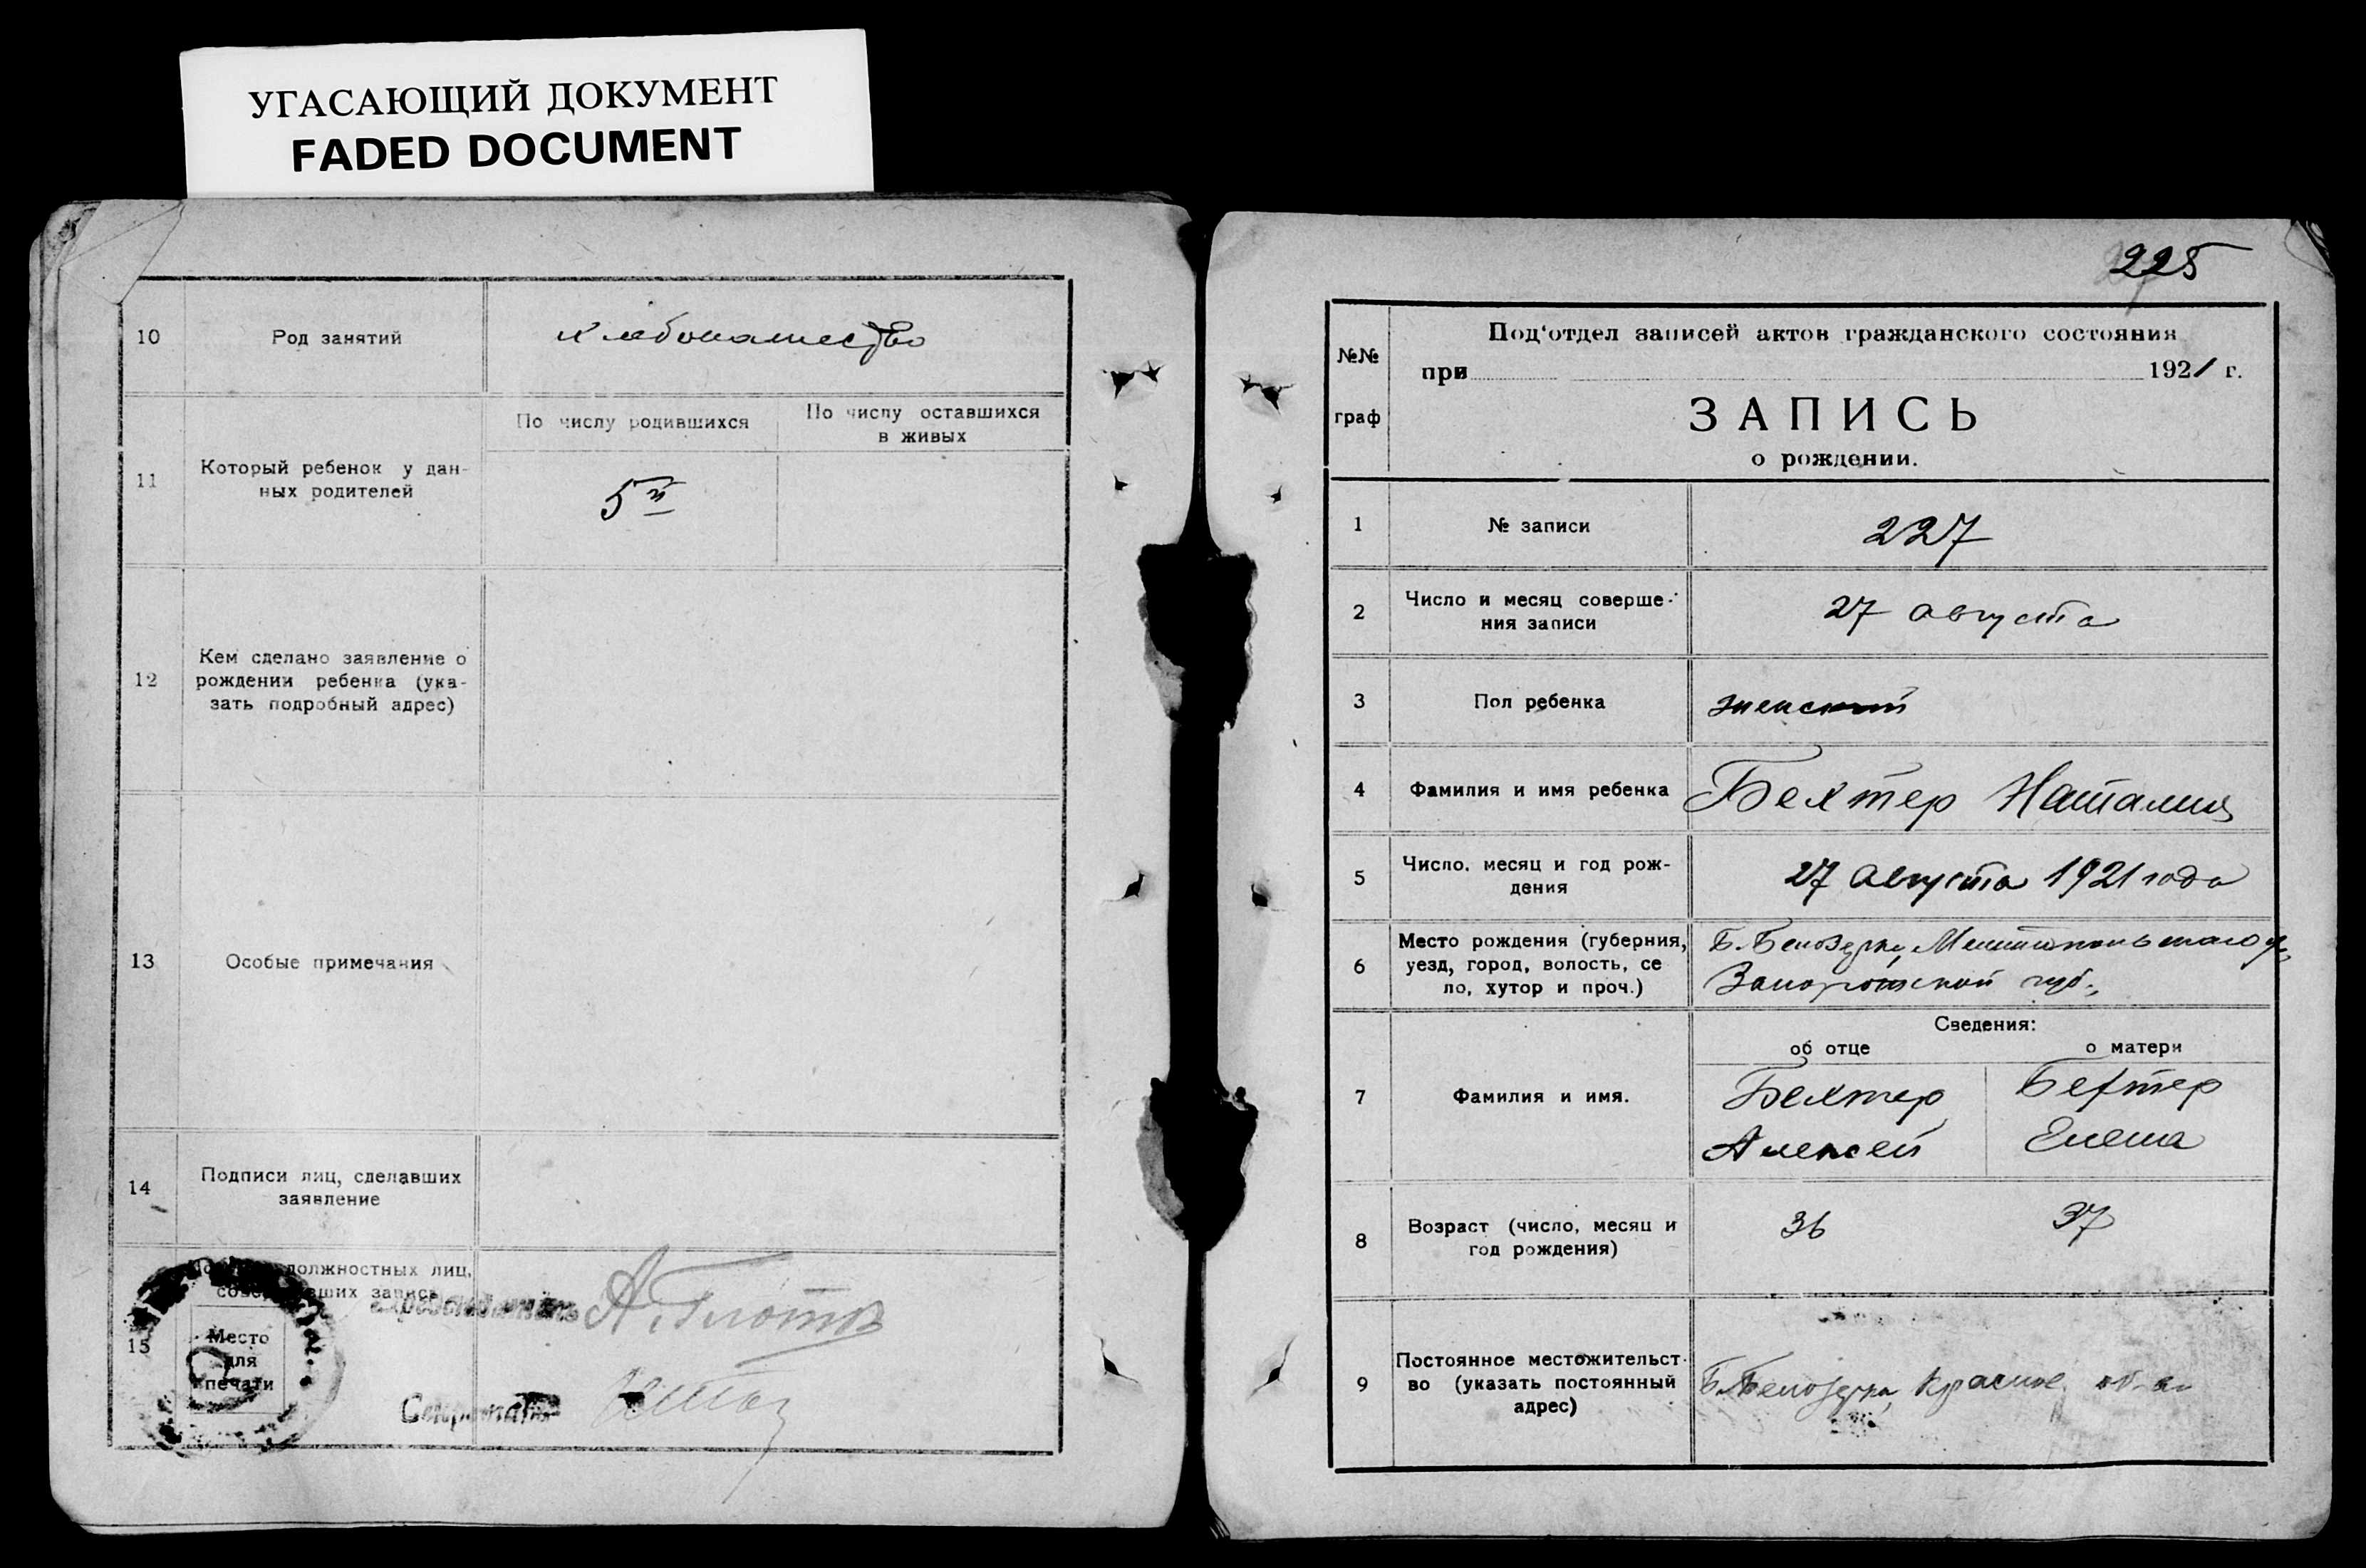 УГАСАЮЩИЙ ДОКУМЕНТ
FADED DOCUMENT
10
Род занятий
хлебопашество
11
Который ребенок у дан-
ных родителей
По числу родившихся
5й
По числу оставшихся
в живых
12
Кем сделано заявление о
рождении ребенка (ука-
зать подробный адрес)
13
Особые примечания
14
Подписи лиц, сделавших
заявление
15
должностных лиц,
запись
Место
для
печати
А. Глотов
225
№№
граф
Под'отдел записей актов гражданского состояния
при 1921 г.
ЗАПИСЬ
о рождении.
1
№ записи
227
2
Число и месяц соверше-
ния записи
27 августа
3
Пол ребенка
женский
4
Фамилия и имя ребенка
Бехтер Наталия
5
Число, месяц и год рож-
дения
27 Августа 1921 года
6
Место рождения (губерния,
уезд, город, волость, се
ло, хутор и проч.)
Б. Белозерка, Мелитопольского у.,
Запорожской губ.,
Сведения:
об отце
о матери
7
Фамилия и имя.
Бехтер
Алексей
Бехтер
Елена
8
Возраст (число, месяц и
год рождения)
36
37
9
Постоянное местожительст-
во (указать постоянный
адрес)
Б. Белозерка,